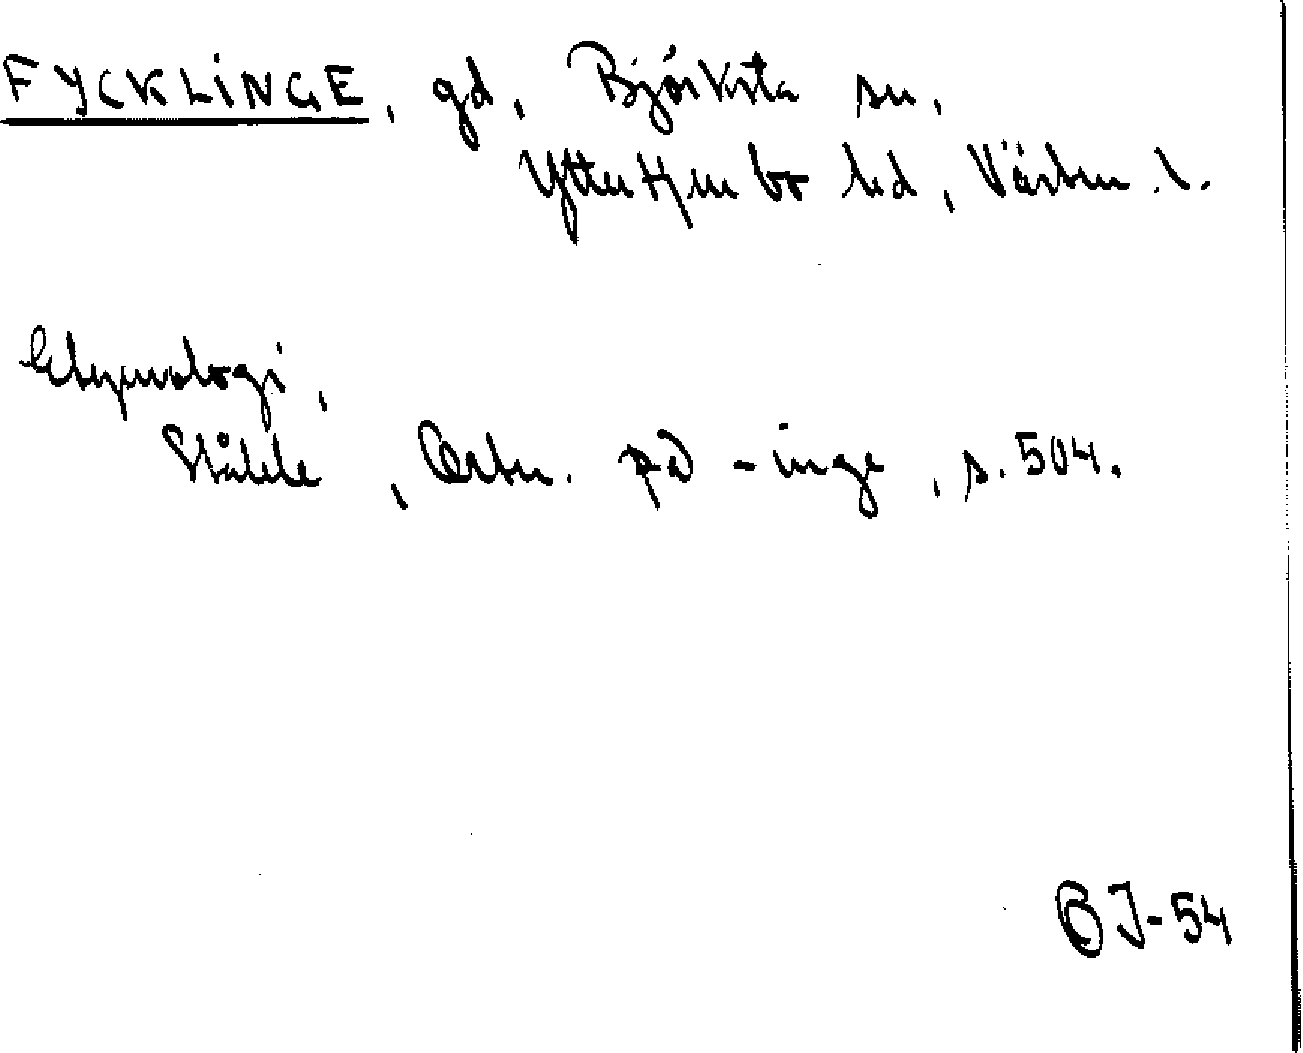 FYCKLINGE, gd, Björksta sn,
Yttertjurbo hd, Västm. l.
Etymologi,
Ståhle, Ortn. på -inge, s. 504.
OJ-54